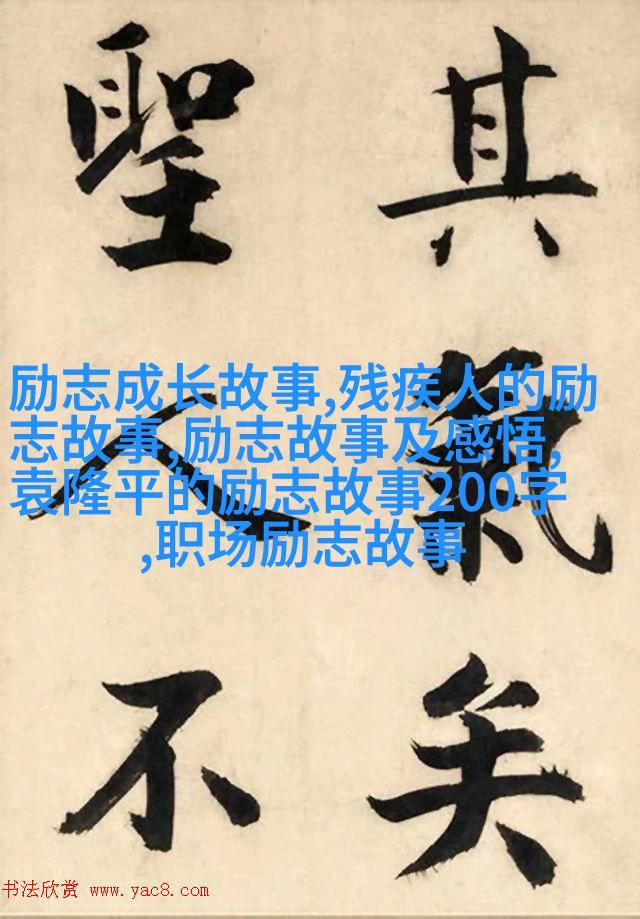 其氣矣
聖人不
励志成长故事,残疾人的励
志故事,励志故事及感悟,
袁隆平的励志故事200字
,职场励志故事
书法欣赏 www.yac8.com